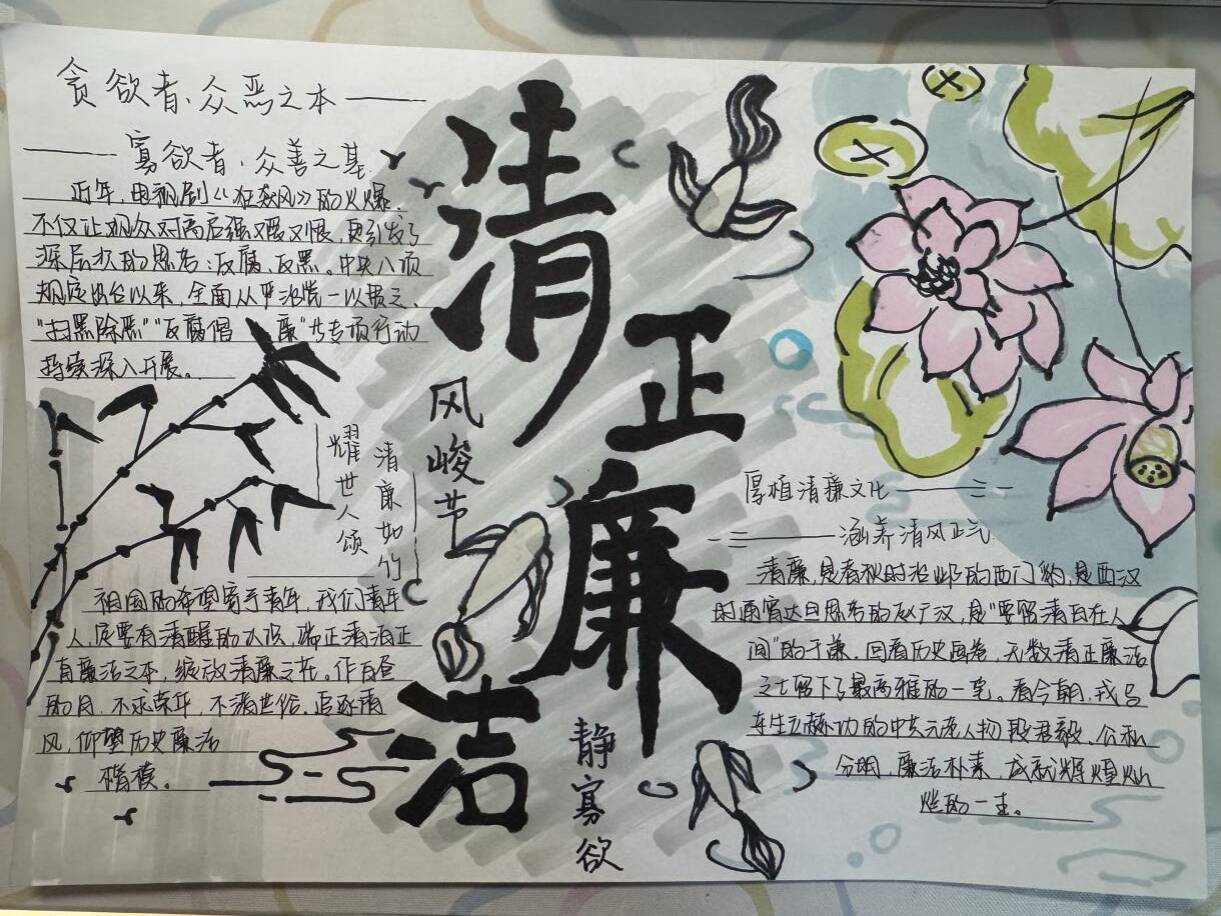 贪欲者、众恶之本——
——寡欲者、众善之基
近年,电视剧《狂飙风》的火爆,
不仅让观众对高启强又爱又恨,更引发了
深层次的思考:反腐、反黑。中央八项
规定出台以来,全面从严治党一以贯之、
"扫黑除恶""反腐倡廉"等专项行动
持续深入开展。
清廉如竹
耀世人颂
祖国的希望寄予青年,我们青年
人,定要有清醒的认识,端正清洁正
直廉洁之本,绽放清廉之花。作白昼
的月,不求荣华,不沾世俗,追逐清
风,仰望历史廉洁
楷模。
清
正
廉
洁
风峻节
静寡欲
厚植清廉文化——
——涵养清风正气
清廉,是春秋时治邺的西门豹,是西汉
时通宵达旦思考的赵广汉,是"要留清白在人
间"的于谦。回看历史画卷,无数清正廉洁
之士留下了最高雅的一笔。看今朝,戎马
半生立赫功的中共元老人物段君毅、公私
分明,廉洁朴素,成就辉煌灿
烂的一生。